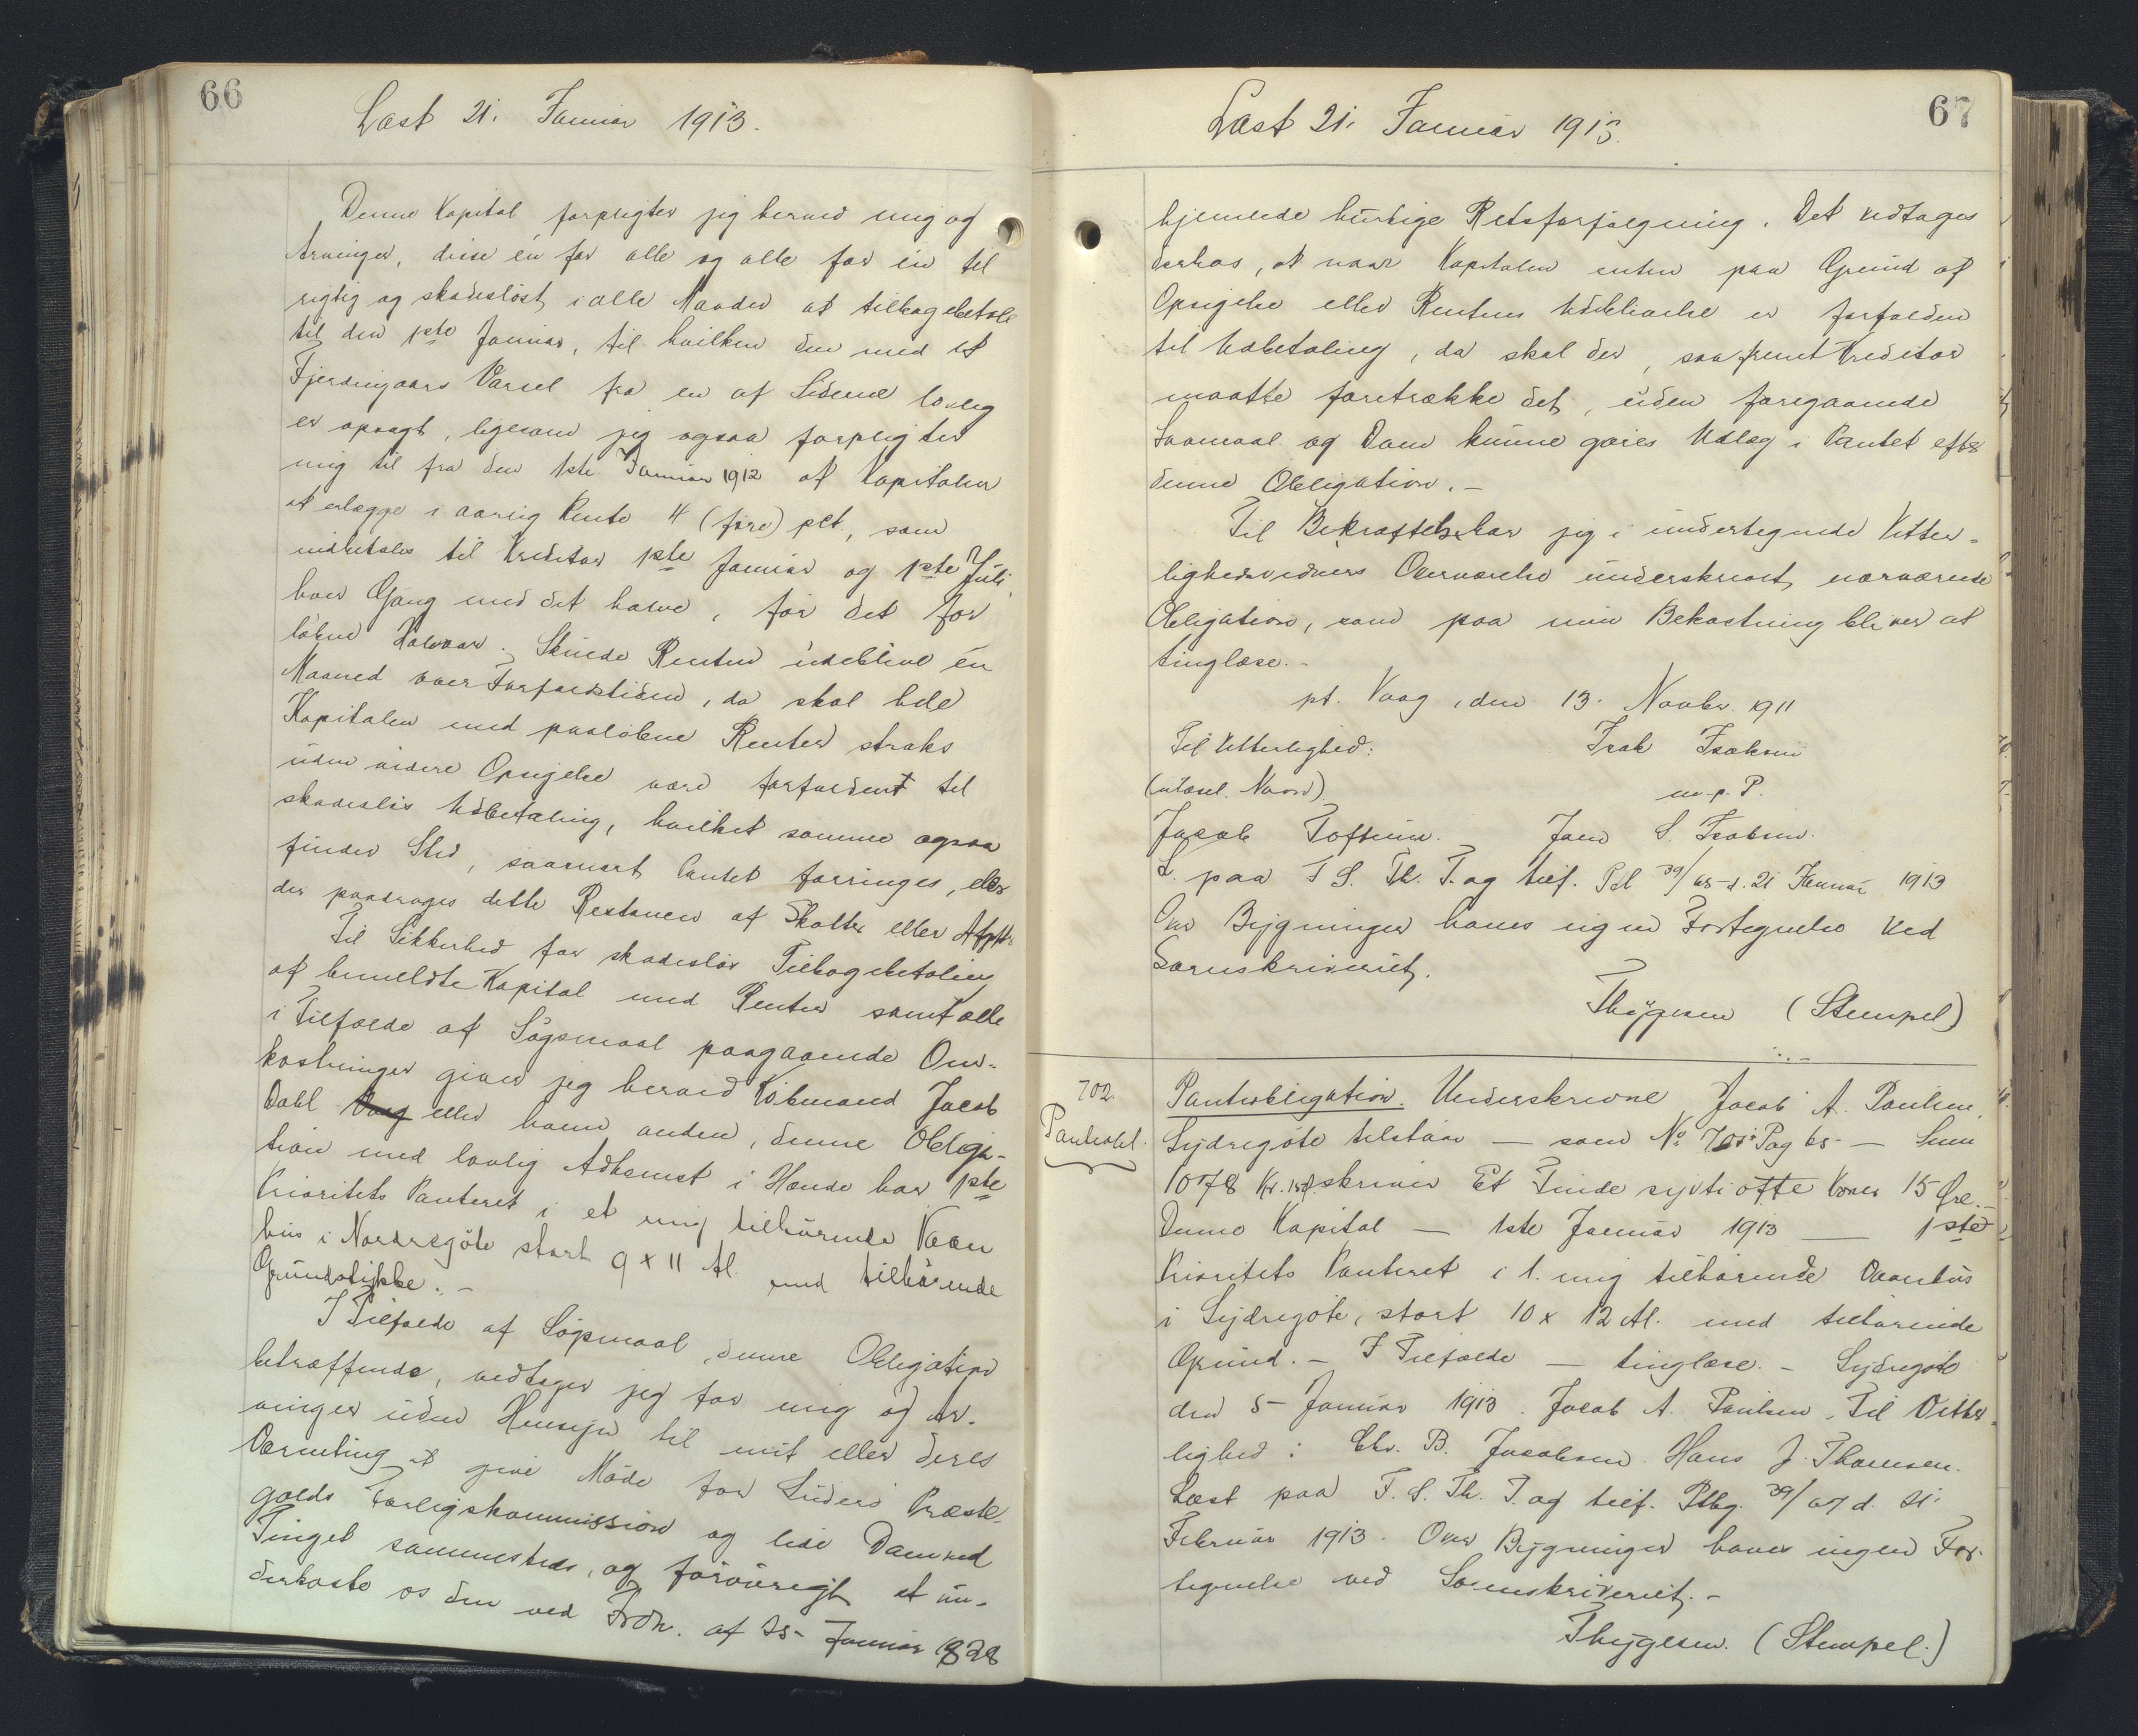 66
Læst 21. Januar 1913.
Denne Kapital forpligter jeg herved mig og
Arvinger, disse én for alle og alle for én til
rigtig og skadesløst i alle Maader at tilbagebetale
til den 1ste Januar, til hvilken den med et
Fjerdingaars Varsel fra en af Siderne lovlig
er opsagt, ligesom jeg ogsaa forpligter
mig til fra den 1ste Januar 1912 af Kapitalen
at erlægge i aarlig Rente 4 (fire) pct, som
indbetales til Kreditor 1ste Januar og 1ste Juli,
hver Gang med det halve, for det for
løbne Halvaar. Skulde Renten udeblive én
Maaned over Forfaldstiden, da skal hele
Kapitalen med paaløbne Renter straks
uden videre Opsigelse være forfalden til
skadesløs Udbetaling, hvilket samme ogsaa
finder Sted, saasnart Pantet forringes, eller
der paadrages dette Restancer af Skatter eller Afgft.
Til Sikkerhed for skadesløs Tilbagebetaling
af bemeldte Kapital med Renter samt alle
i Tilfælde af Søgsmaal paagaaende Om-
kostninger giver jeg herved Købmand Jacob
Dahl Vaag eller hvem anden, denne Obliga-
tion med lovlig Adkomst i Hænde har 1ste
Prioritets Panteret i et mig tilhørende Vaan
hus i Nordregöte stort 9 x 11 Al. med tilhørende
Grundstykke. -
I Tilfælde af Søgsmaal denne Obligation
betræffende, vedtager jeg for mig og Ar-
vinger uden Hensyn til mit eller deres
Værneting at give Møde for Suderø Præste-
gælds Forligskommission og lide Dom ved
Tinget sammesteds, og forøvrigt at un-
derkaste os den ved Frdn. af 25- Januar 1828
67
Læst 21. Januar 1913.
hjemlede hurtige Retsforfølgning. Det vedtages
derhos, at naar Kapitalen enten paa Grund af
Opsigelse eller Rentens Udeblivelse er forfalden
til Udbetaling, da skal der, saafremt Kreditor
maatte foretrække det, uden foregaaende
Søgsmaal og Dom kunne gøres Udlæg i Pantet efter
denne Obligation. -
Til Bekræftelse har jeg i undertegnede Vitter-
lighedsvidners Overværelse underskrevet nærværende
Obligation, som paa min Bekostning bliver at
tinglæse. -
pt. Vaag, den 13. Novbr. 1911
Til Vitterlighed: Isak Isaksen
(ulæsel. Navn) m. p. P.
Jacob Toftum. Joen S. Isaksen.
L. paa T S. Th. T. og tilf. Ptl 39/65 - d. 21 Januar 1913
Over Bygninger haves ingen Fortegnelse ved
Sorenskriveriet.
Thygesen (Stempel)
702.
Panteobl.
Panteobligation. Underskrevne Jacob A. Poulsen,
Sydregöte tilstaar — som No 701 Pag 65 — Sum
1078 Kr. 15 Ø. skriver Et Tusinde syvti otte Kroner 15 Øre. -
Denne Kapital — 1ste Januar 1913 — 1ste
Prioritets Panteret i 1. mig tilhørende Vaanhus
i Sydregöte, stort 10 x 12 Al. med tilhørende
Grund. - I Tilfælde — tinglæse. - Sydregöte
den 5- Januar 1913. Jacob A. Poulsen. Til Vitter-
lighed: Chr. B. Jacobsen. Hans J. Thomsen.
Læst paa T. S. Th. T. og tilf. Ptbg. 39/67 d. 21.
Februar 1913. Over Bygninger haves ingen For-
tegnelse ved Sorenskriveriet. -
Thygesen. (Stempel.)